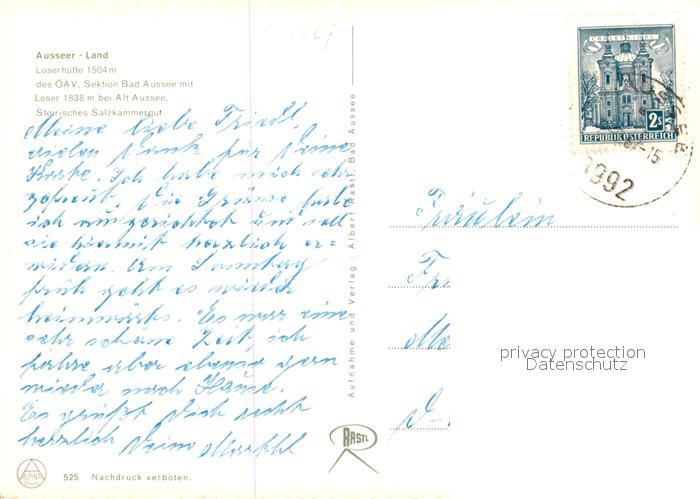 Ausseer - Land
Loserhütte 1504 m
des ÖAV, Sektion Bad Aussee mit
Loser 1838 m bei Alt Aussee,
Steirisches Salzkammergut
Meine liebe Friedl,
vielen Dank für Deine
Karte. Ich habe mich sehr
gefreut. Die Grüsse habe
ich ausgerichtet und soll
sie hiermit herzlich er=
widern. Am Samstag
früh geht es wieder
heimwärts. Es war eine
sehr schöne Zeit, ich
fahre aber ebenso gern
wieder nach Hause.
Es grüßt Dich recht
herzlich Deine
525 Nachdruck verboten.
Aufnahme und Verlag: Albert Rastl, Bad Aussee
RASTL
CHRISTKINDL
2s
REPUBLIK ÖSTERREICH
-15
8992
Fräulein
privacy protection
Datenschutz